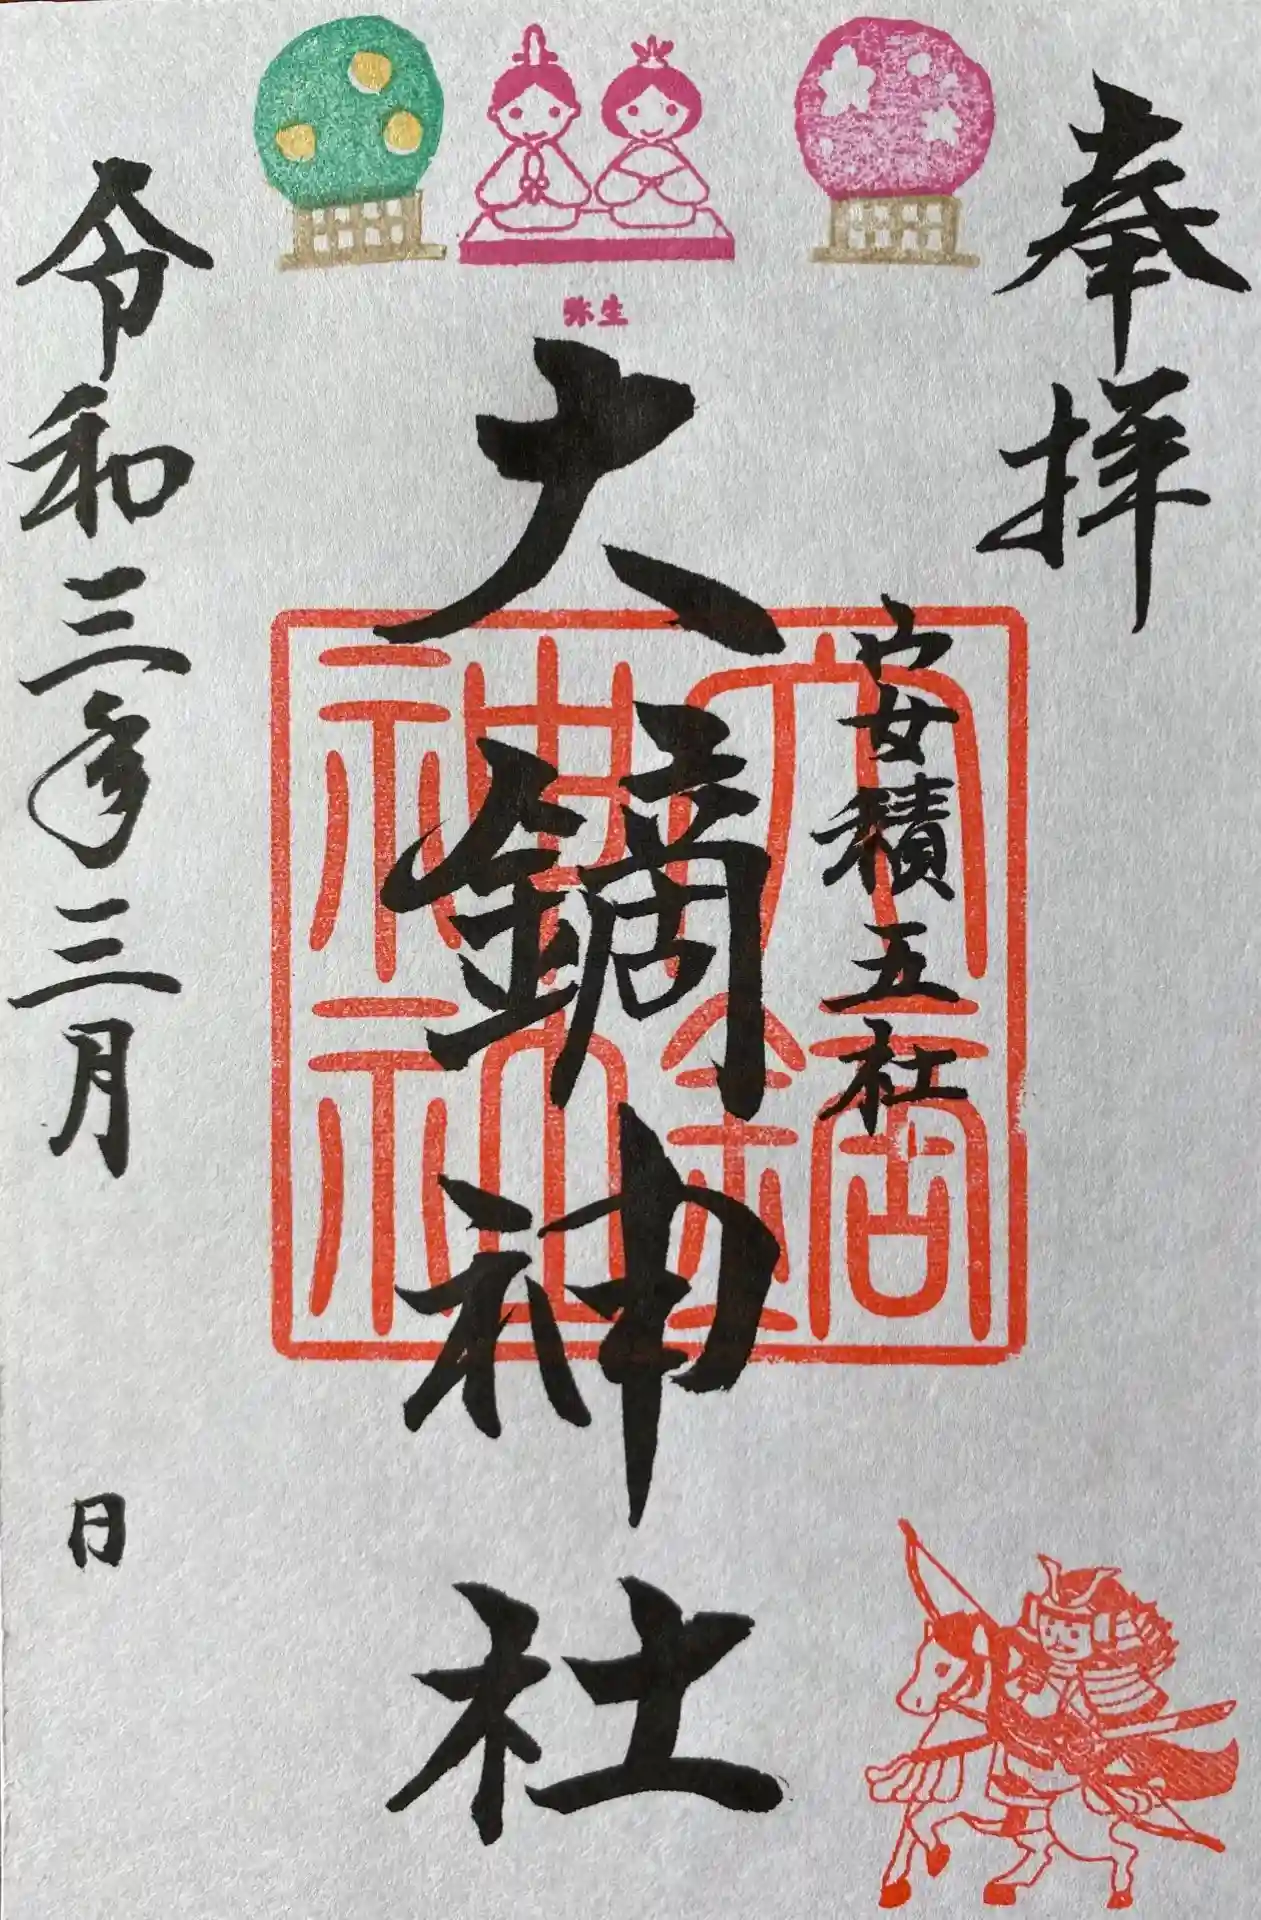 奉拝
安積五社
弥生
大鏑神社
大鏑神社
令和三年三月 日